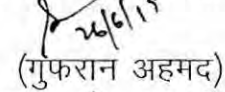 26/6/1
(गुफरान अहमद)